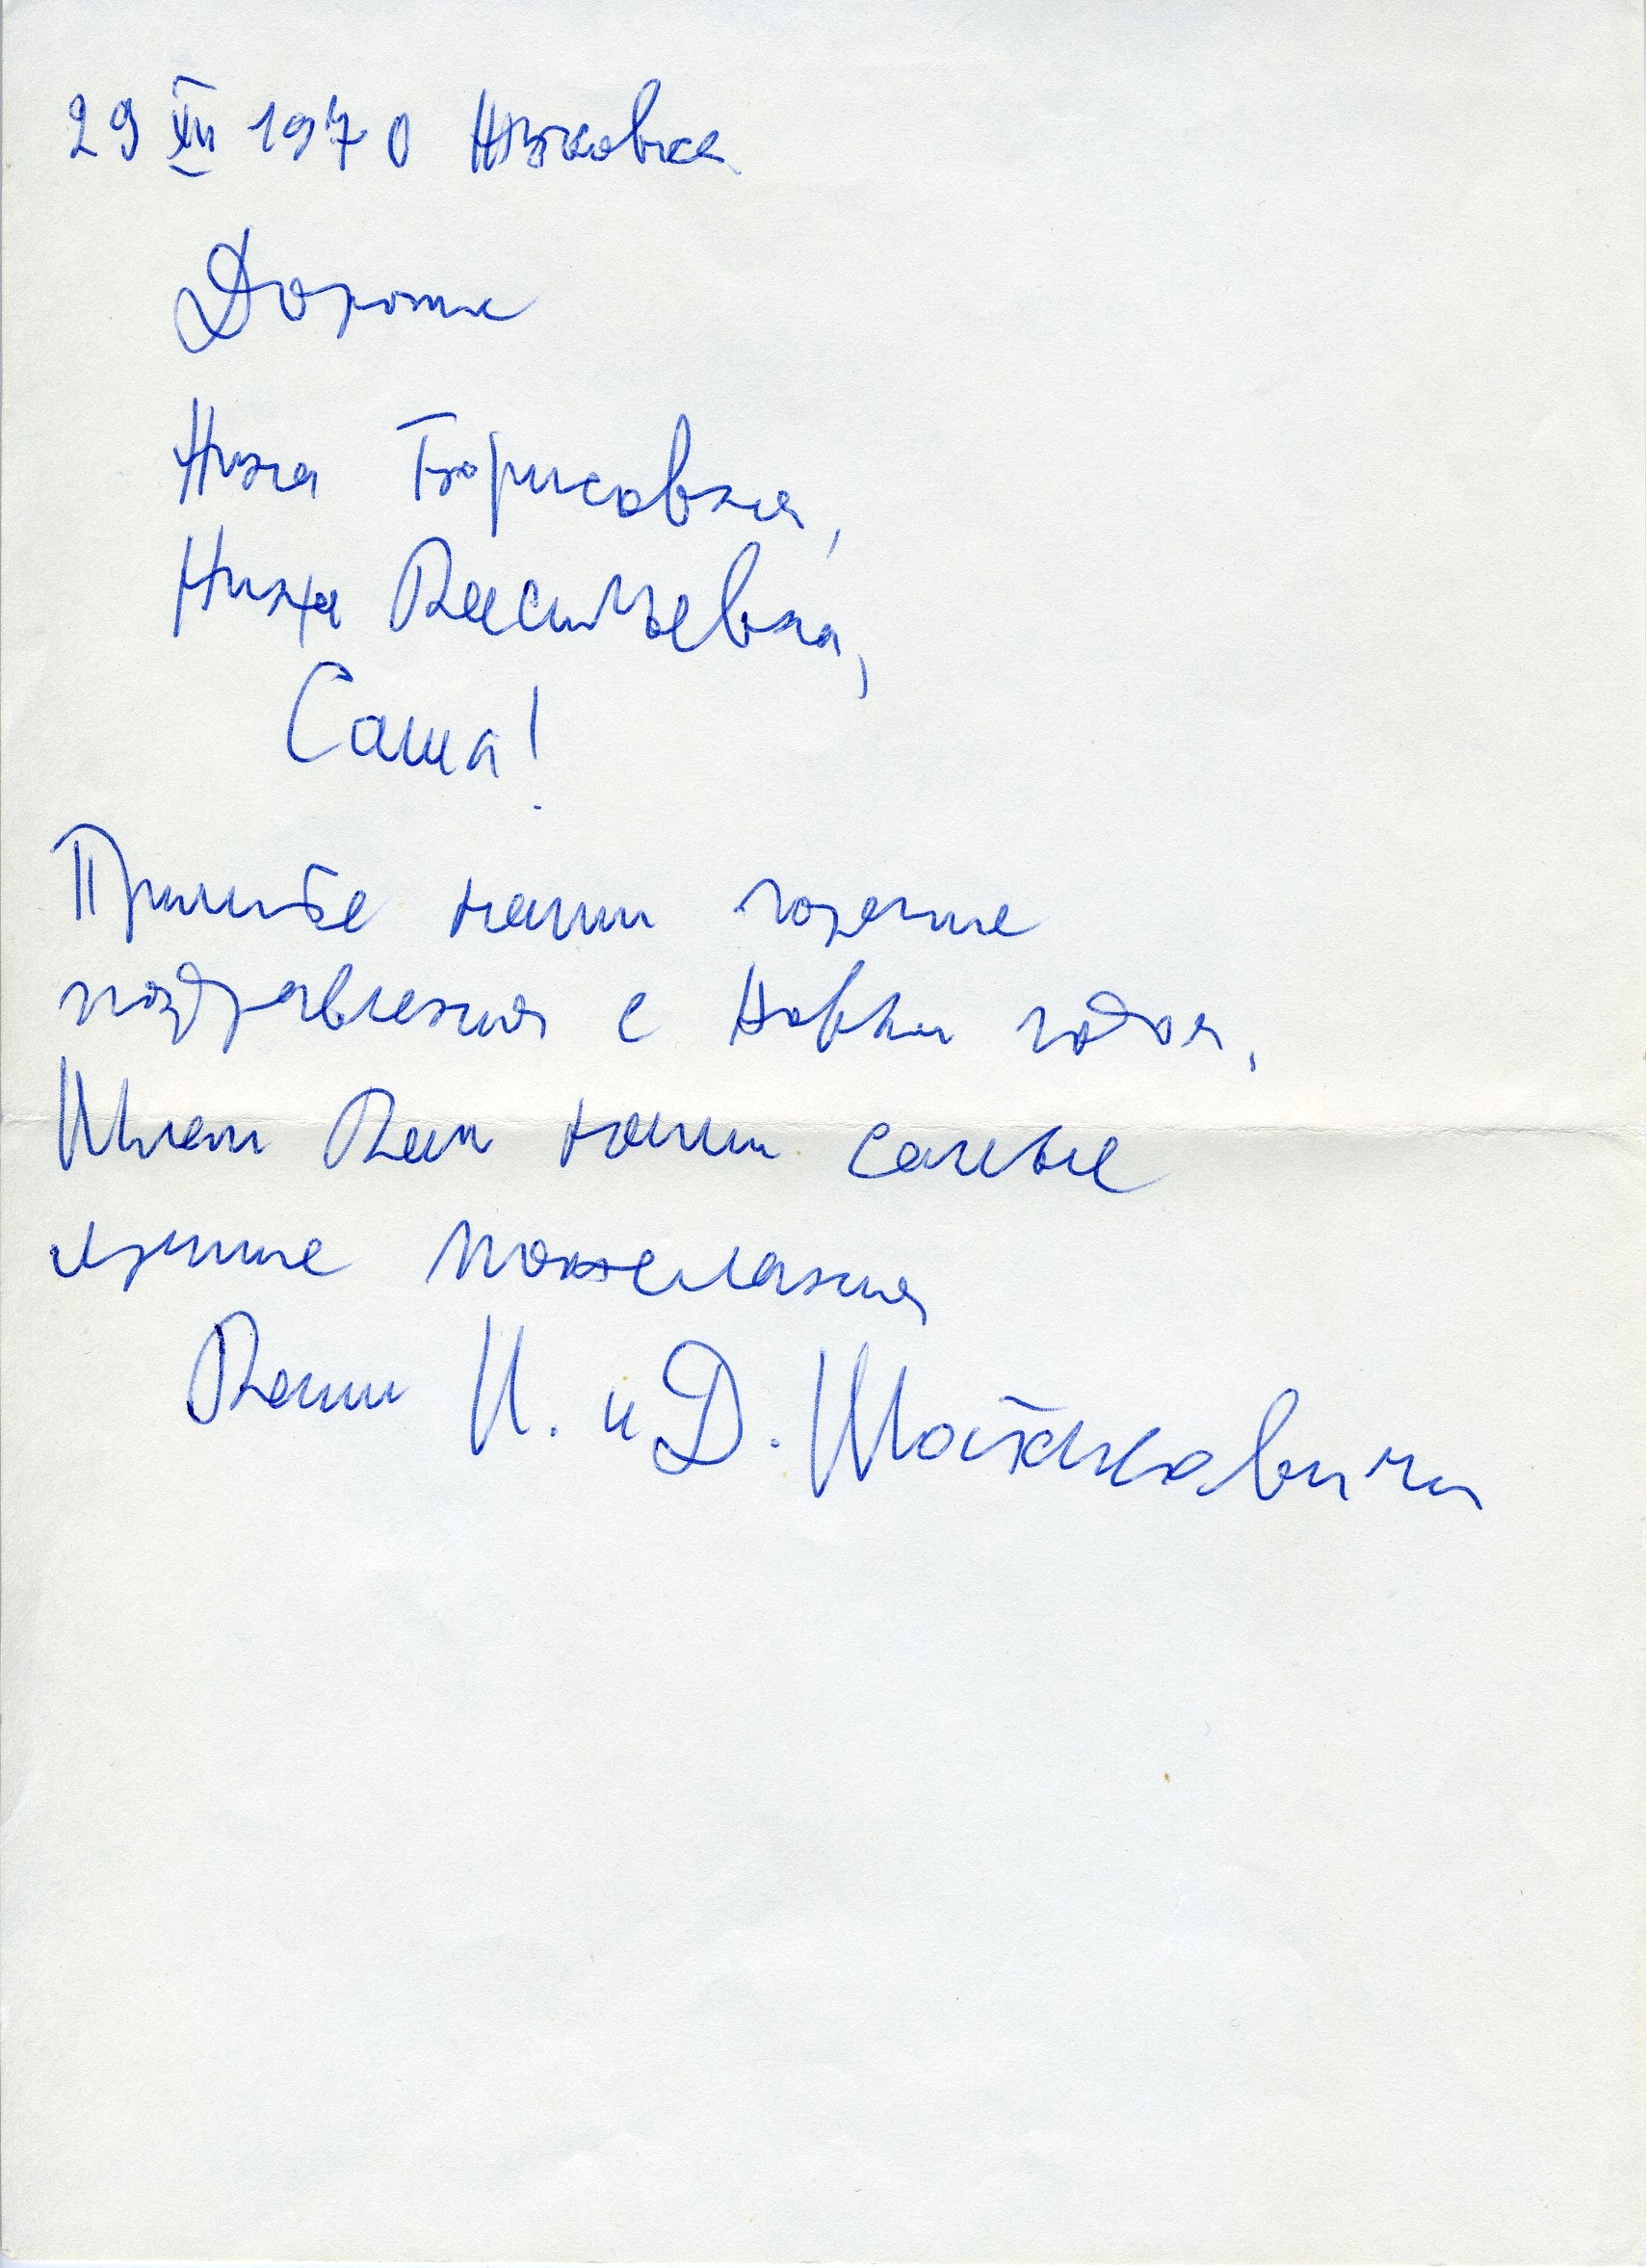 29 XII 1970 Жуковка
Дорогие
Нина Борисовна,
Нина Васильевна,
Саша!
Примите наши горячие
поздравления с Новым годом.
Шлем Вам наши самые
лучшие пожелания
Ваши И. и Д. Шостаковичи